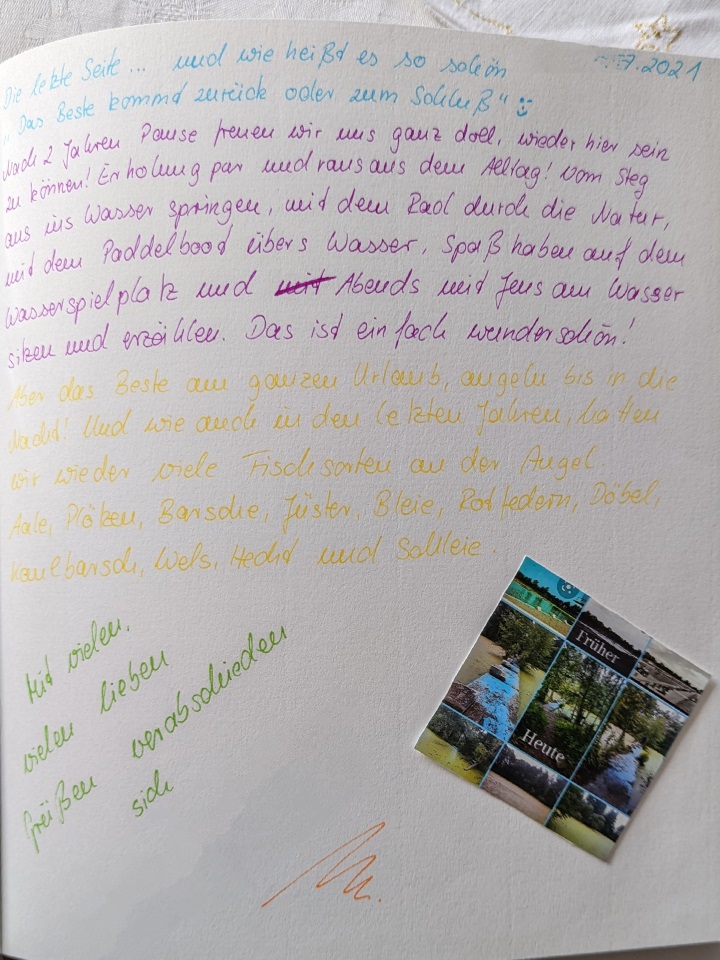 7.2021
Die letzte Seite... und wie heißt es so schön
"Das Beste kommt zurück oder zum Schluß"
Nach 2 Jahren Pause freuen wir uns ganz doll, wieder hier sein
zu können! Erholung pur und raus aus dem Alltag! Vom Steg
aus ins Wasser springen, mit dem Rad durch die Natur,
mit dem Paddelboot übers Wasser, Spaß haben auf dem
Wasserspielplatz und mit Abends mit Jens am Wasser
sitzen und erzählen. Das ist einfach wunderschön!
Aber das Beste am ganzen Urlaub, angeln bis in die
Nacht! Und wie auch in den letzten Jahren, hatten
wir wieder viele Fischsorten an der Angel.
Aale, Plötzen, Barsche, Jüster, Bleie, Rotfedern, Döbel,
Kaulbarsch, Wels, Hecht und Schleie.
Mit vielen,
vielen lieben
Grüßen verabschieden
sich
Früher
Heute